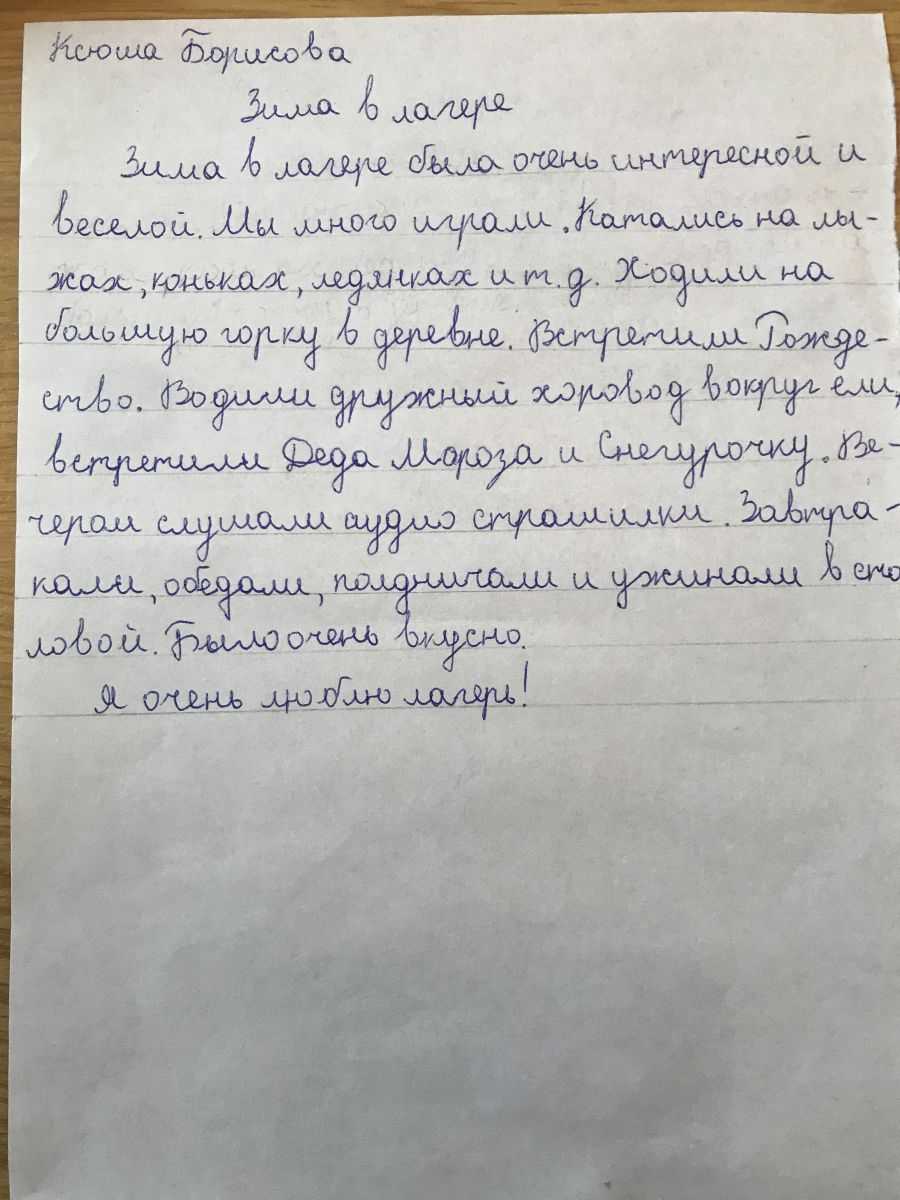 Ксюша Борисова
Зима в лагере
Зима в лагере была очень интересной и
веселой. Мы много играли. Катались на лы-
жах, коньках, ледянках и т. д. Ходили на
большую горку в деревне. Встретили Рожде-
ство. Водили дружный хоровод вокруг ели,
встретили Деда Мороза и Снегурочку. Ве-
чером слушали аудио страшилки. Завтра-
кали, обедали, полдничали и ужинали в сто
ловой. Было очень вкусно.
Я очень люблю лагерь!